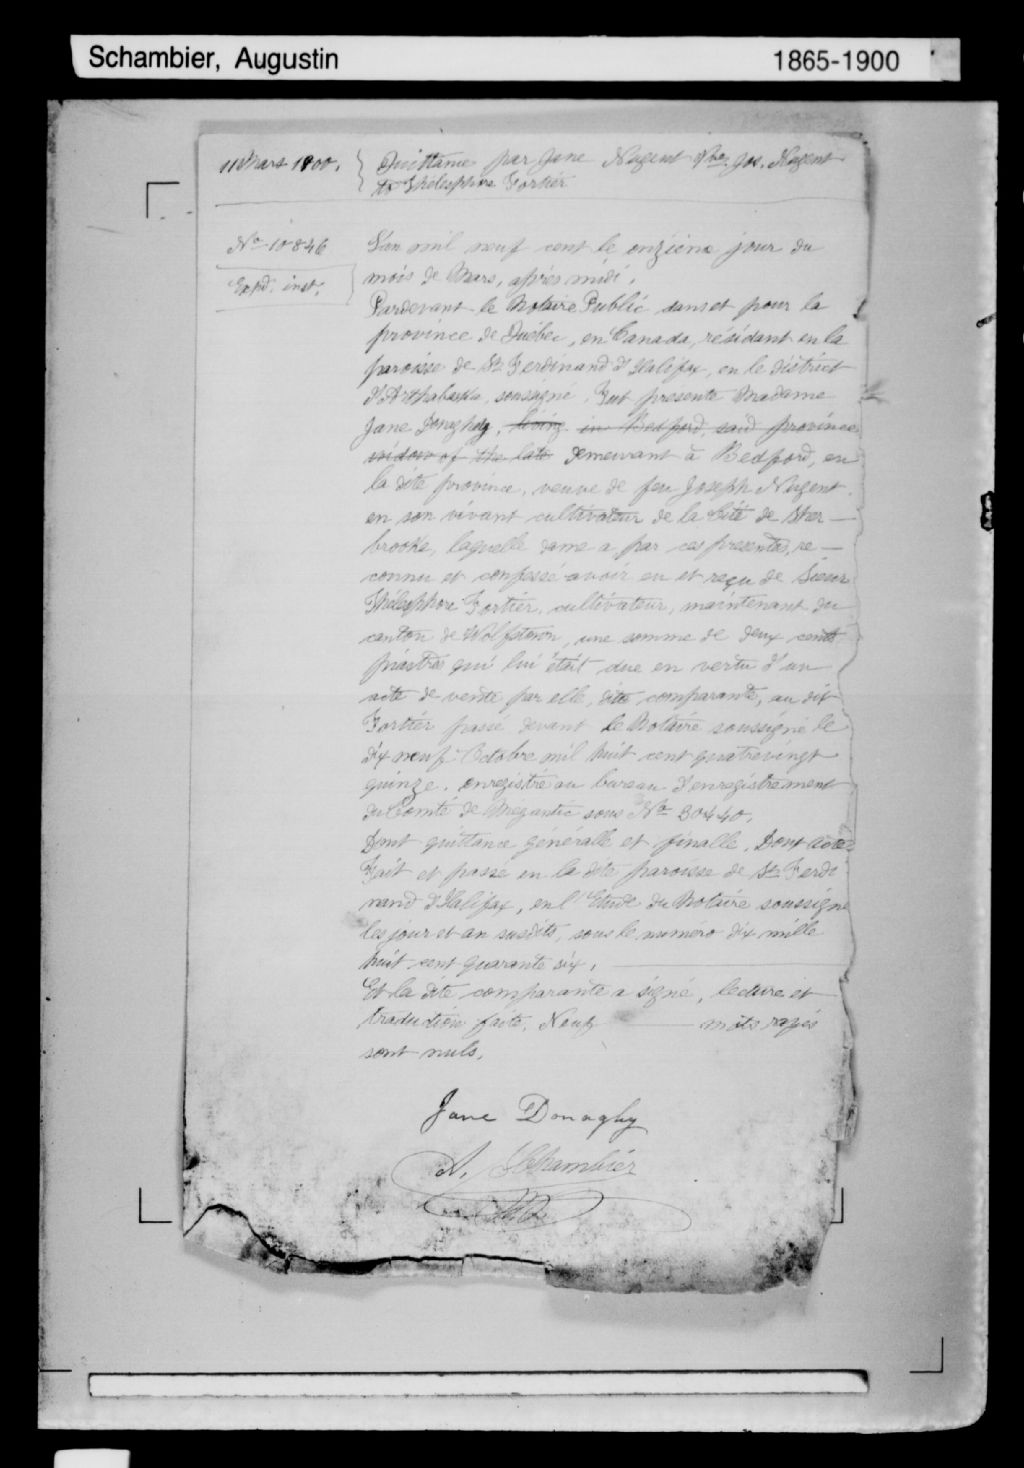 Schambier, Augustin
1865-1900
11 Mars 1900.
Quittance par Jane Nugent Jos. Nugent
to Thélesphore Fortier
No 10846
Expd. inst.
L'an mil neuf cent le onzième jour du
mois de Mars, après midi,
Pardevant le Notaire Public dans et pour la
province de Québec, en Canada, résidant en la
paroisse de St. Ferdinand d'Halifax, en le district
d'Arthabaska, soussigné, Fut presente Madame
Jane Donaghy, living in Bedford, said province
widow of the late demeurant à Bedford, en
la dite province, veuve de feu Joseph Nugent
en son vivant cultivateur de la Cité de Sher-
brooke, laquelle dame a par ces presentes, re-
connu et confessé avoir eu et reçu de Sieur
Thélesphore Fortier, cultivateur, maintenant du
canton de Wolfstown, une somme de deux cents
piastres qui lui était due en vertu d'un
acte de vente par elle, dite comparante, au dit
Fortier passé devant le Notaire soussigné le
dix neuf Octobre mil huit cent quatrevingt
quinze, enregistré au bureau d'enregistrement
du Comté de Mégantic sous No 30440.
Dont quittance générale et finalle, Dont acte
Fait et passé en la dite paroisse de St. Ferdi
nand d'Halifax, en l'Etude du Notaire soussigné
les jour et an susdits, sous le numéro dix mille
huit cent quarante six,
Et la dite comparante a signé, lecture et
traduction faite. Neuf mots rayés
sont nuls.
Jane Donaghy
A. Schambier